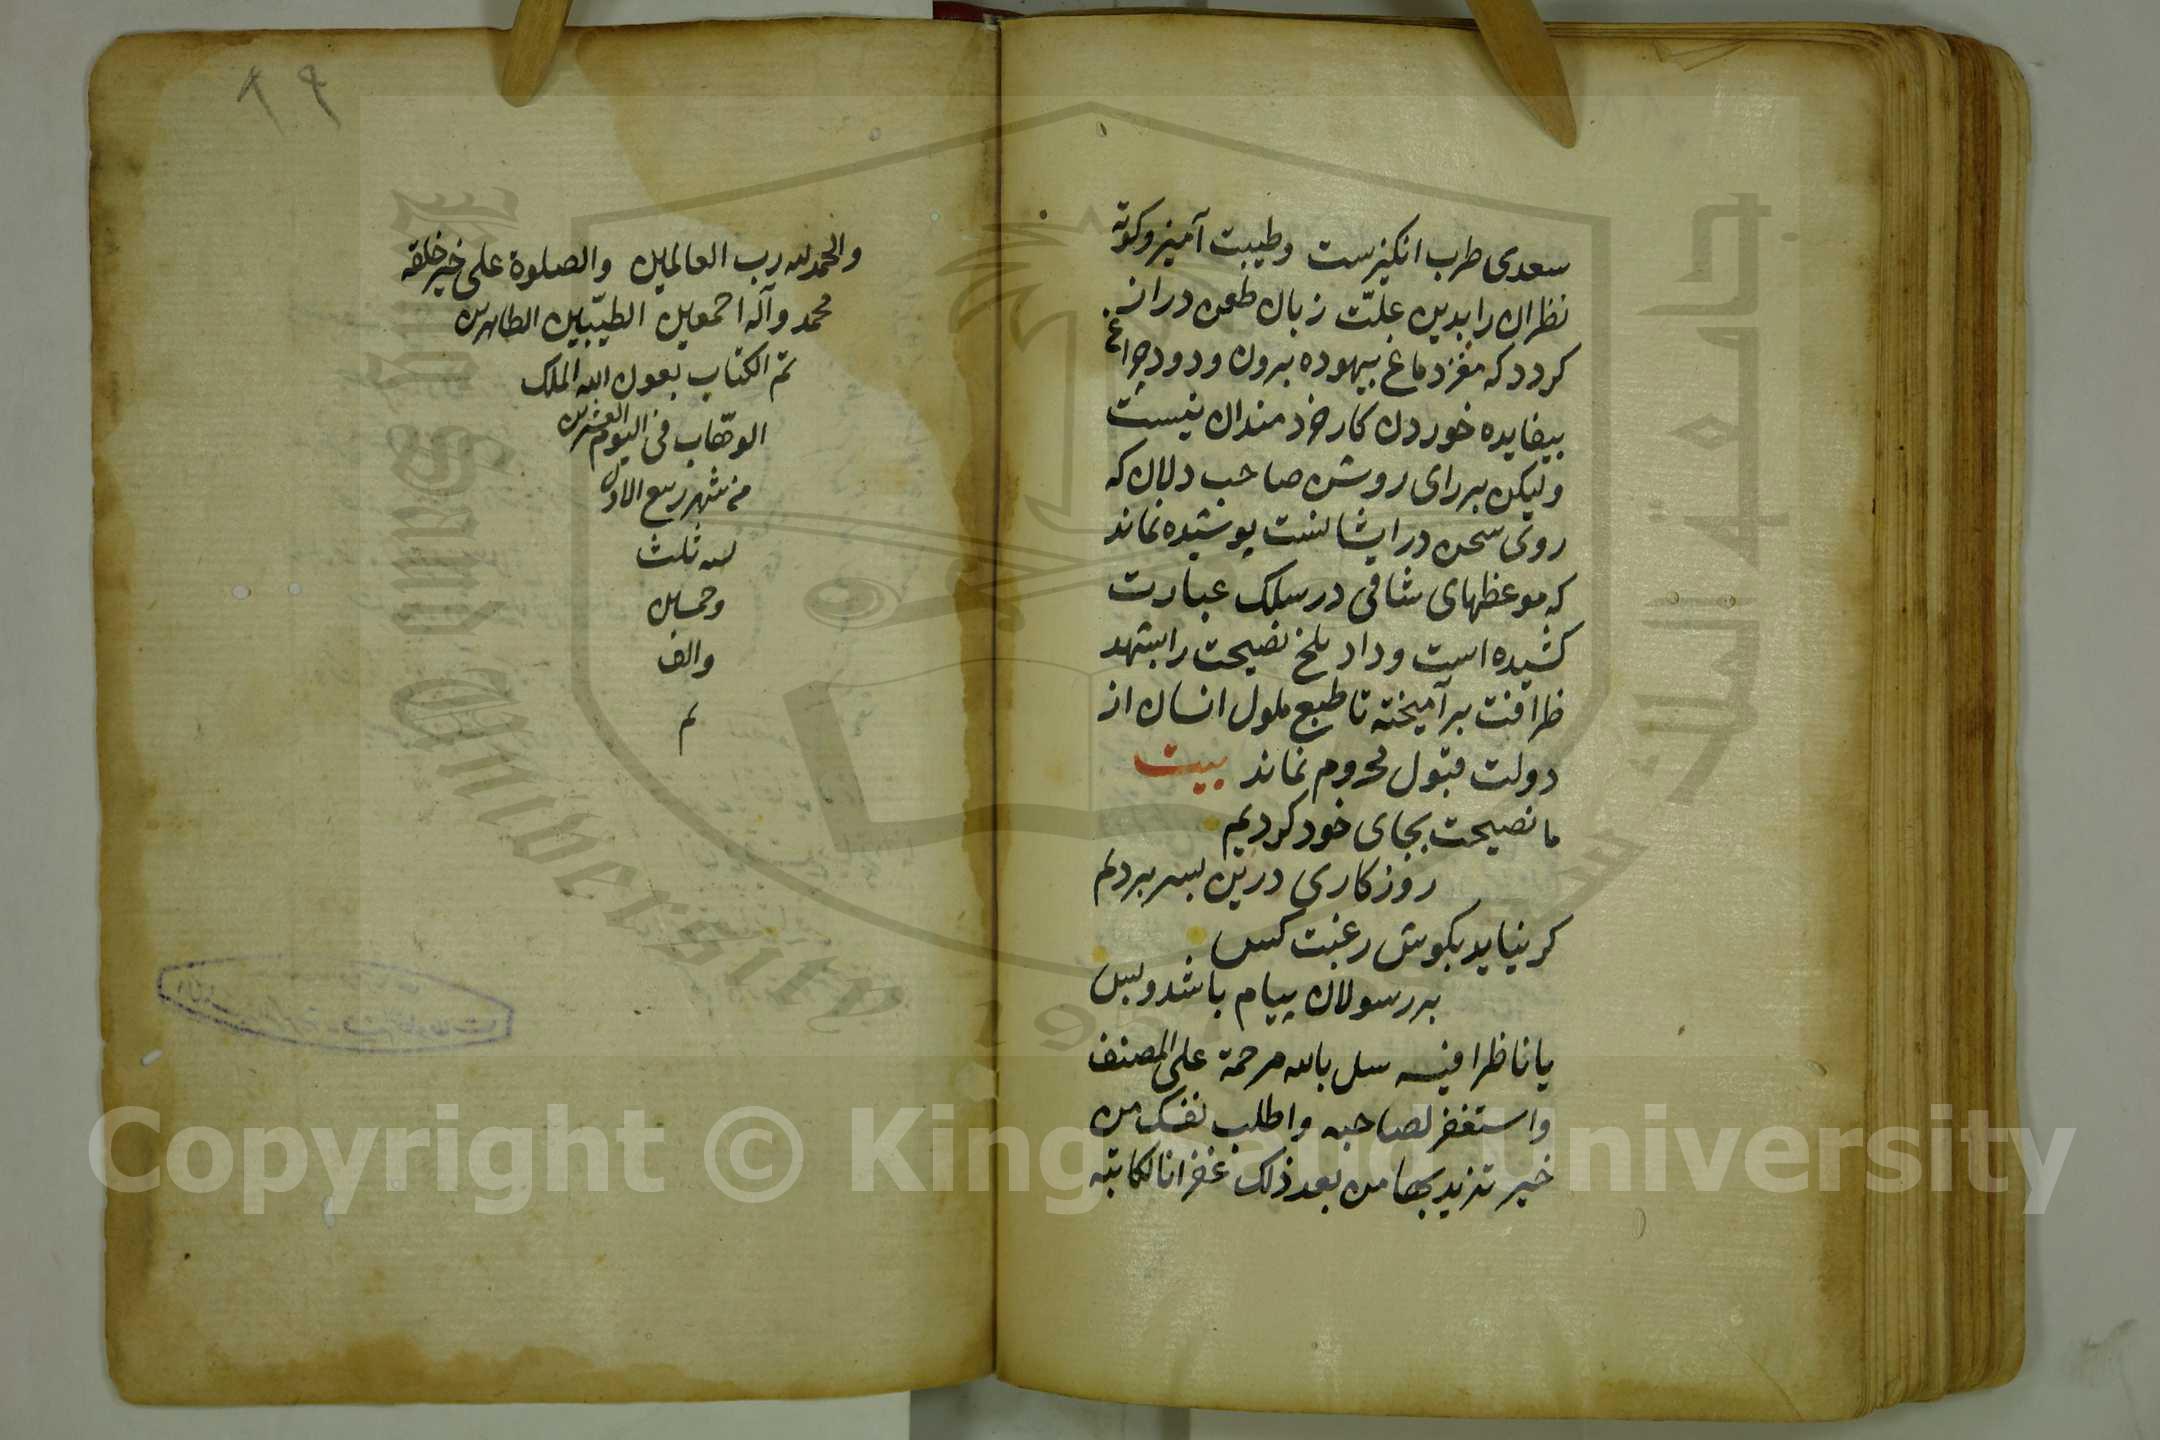 سعدی طرب انکیزست وطیبت آمیز وکوته
نظران را بدین علّت زبان طعن دراز
کردد که مغز دماغ بیهوده بردن ودود چراغ
بیفایده خوردن کار خردمندان نیست
ولیکن بر رای روشن صاحب دلان که
روی سخن در ایشانست پوشیده نماند
که موعظهای شافی در سلک عبارت
کشیده است ودارد تلخ نصیحت را بشهد
ظرافت بر آمیخته تا طبع ملول انسان از
دولت قبول محروم نماند بیت
ما نصیحت بجای خود کردیم
روزکاری درین بسر بردیم
کر نیاید بکوش رغبت کس
بر رسولان پیام باشد وبس
یا ناظرا فیه سل بالله مرحمة علی المصنف
واستغفر لصاحبه واطلب لنفسک من
خیر تزید بها من بعد ذلک غفرانا لکاتبه
٨٩
والحمد لله رب العالمین والصلوة علی خیر خلقه
محمد وآله اجمعین الطیّبین الطاهرین
تم الکتاب بعون الله الملک
الوهّاب فی الیوم العشرین
من شهر ربیع الاول
سنه ثلث
وخمسین
والف
تم
Copyright © King Saud University
جامعة الملك سعود
King Saud University
1957